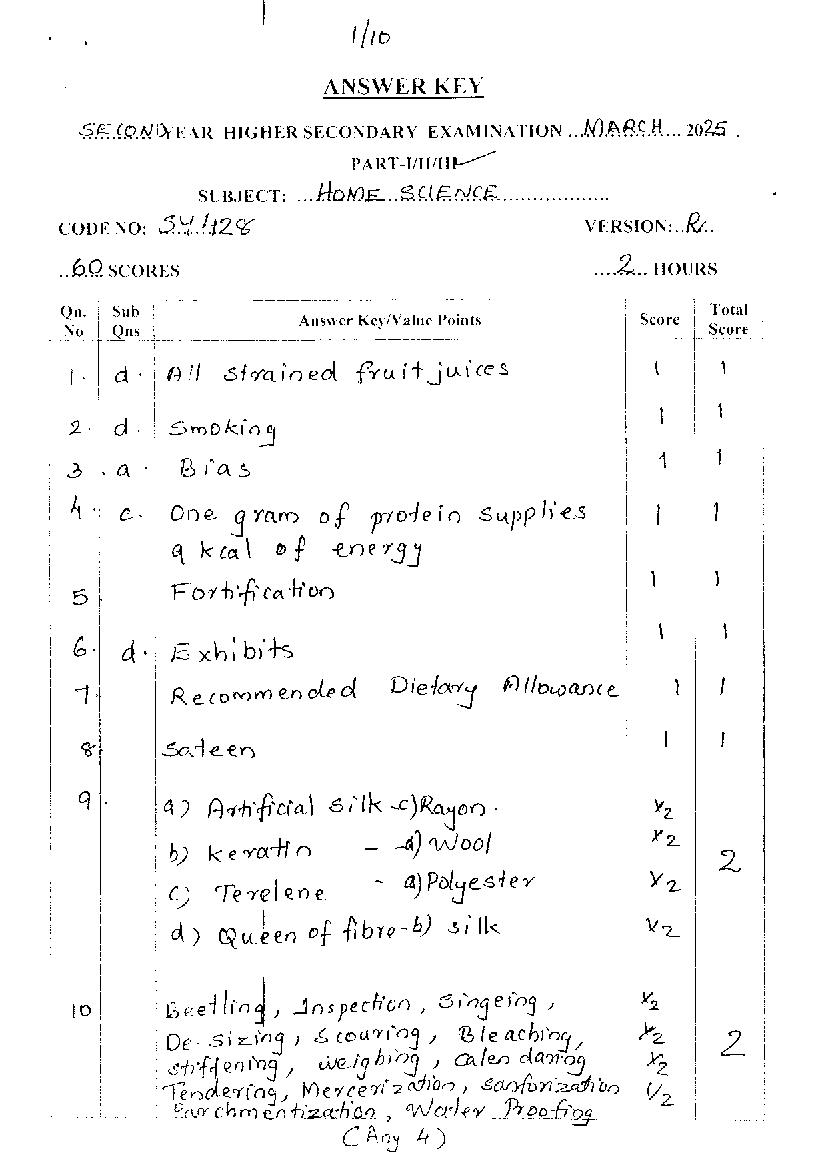 1/10
ANSWER KEY
SECOND YEAR HIGHER SECONDARY EXAMINATION ..MARCH... 2025.
PART-I/II/III
SUBJECT: ...HOME SCIENCE..................
CODE NO: SY428 VERSION:..R..
..60 SCORES ....2... HOURS
Qn. No Sub Qns Answer Key/Value Points Score Total Score
1. d. All strained fruit juices 1 1
2. d. Smoking 1 1
3. a. Bias 1 1
4. c. One gram of protein supplies 1 1
9 kcal of energy
5 Fortification 1 1
6. d. Exhibits 1 1
7 Recommended Dietary Allowance 1 1
8 Sateen 1 1
9. a) Artificial Silk - c) Rayon. 1/2
b) keratin - d) Wool 1/2
c) Terelene - a) Polyester 1/2 2
d) Queen of fibre - b) silk 1/2
10 Beetling, Inspection, Singeing, 1/2
De-sizing, Scouring, Bleaching, 1/2 2
stiffening, weighing, calendaring 1/2
Tendering, Mercerization, sanforization 1/2
Parchmentization, Water Proofing
(Any 4)